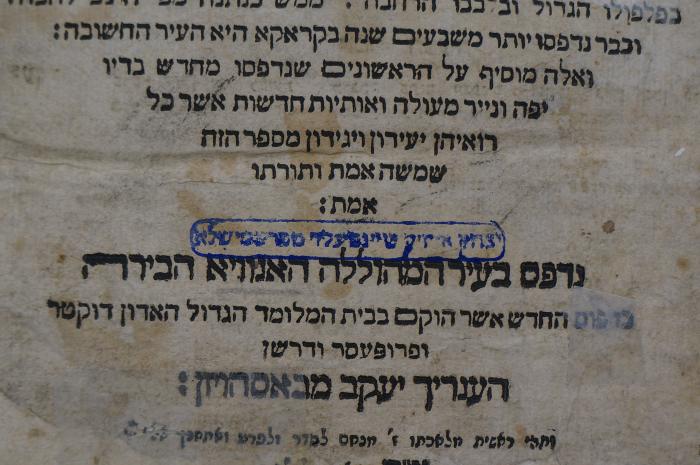 בפלפולו הגדול
וכבר נדפסו יותר משבעים שנה בקראקא היא העיר החשובה:
ואלה מוסיף על הראשונים שנדפסו מחדש בדיו
יפה ונייר מעולה ואותיות חדשות אשר כל
רואיהן יעידון ויגידון מספר הזה
שמשה אמת ותורתו
אמת:
יצחק אייזיק
נדפס בעיר המהוללה האנוויא הבירה
בדפוס החדש אשר הוקם בבית המלומד הגדול האדון דוקטר
ופרופעסר ודרשן
הענריך יעקב מבאסהויזן:
ותהי ראשית מלאכתו